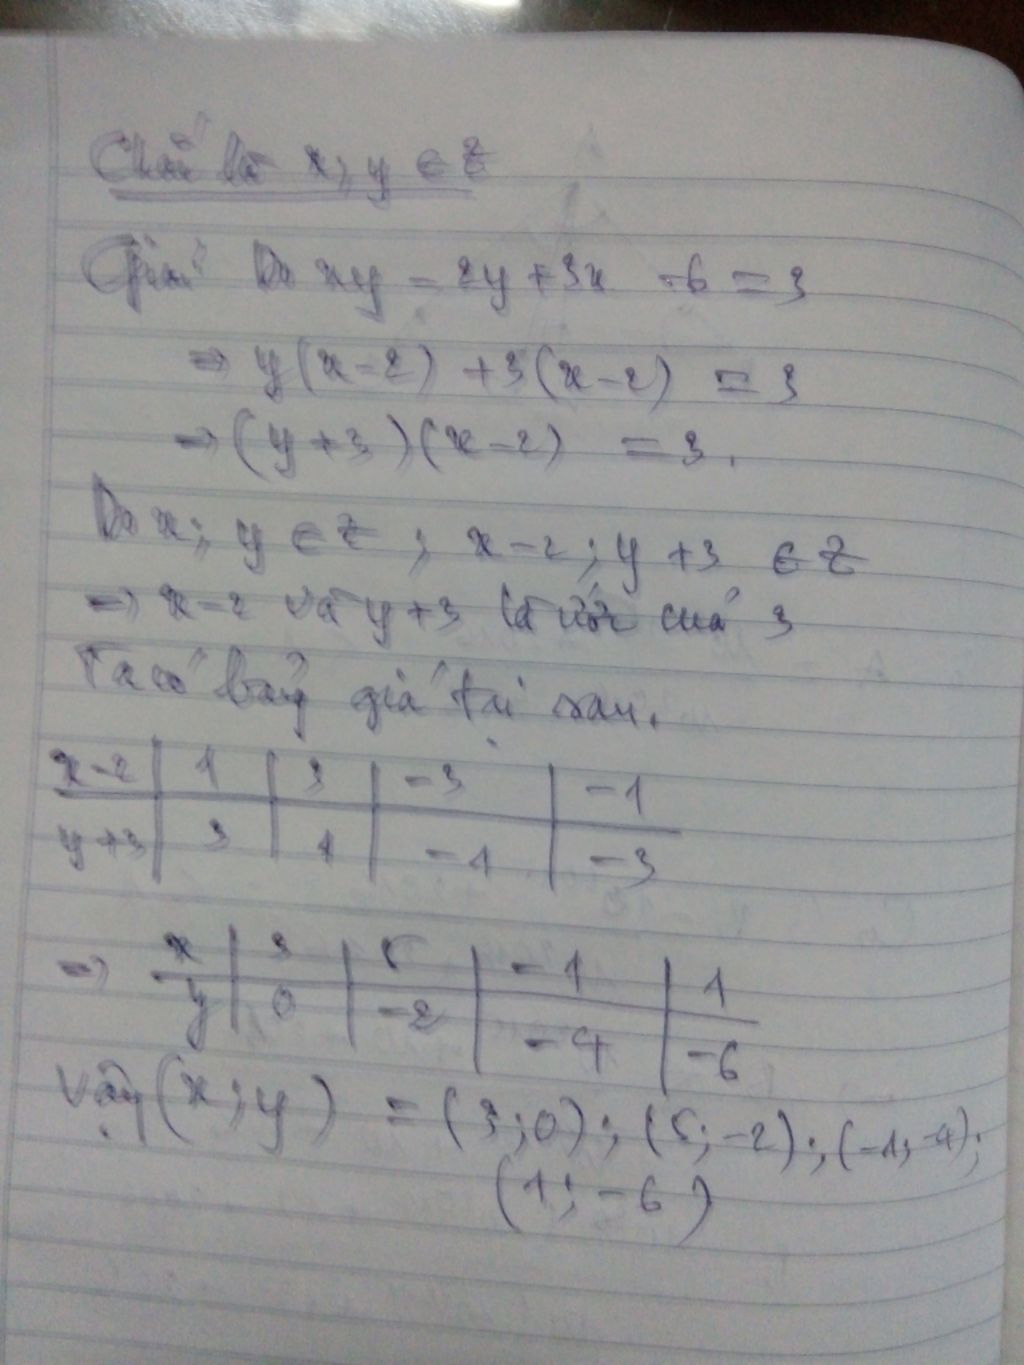 Chắc là x; y ∈ Z
Giải Do xy - 2y + 3x - 6 = 3
⇒ y(x-2) + 3(x-2) = 3
⇒ (y+3)(x-2) = 3.
Do x; y ∈ Z; x-2; y+3 ∈ Z
⇒ x-2 và y+3 là ước của 3
Ta có bảng giá trị sau.
x-2 | 1 | 3 | -3 | -1
y+3 | 3 | 1 | -1 | -3
⇒ x | 3 | 5 | -1 | 1
y | 0 | -2 | -4 | -6
Vậy (x; y) = (3; 0); (5; -2); (-1; -4);
(1; -6)